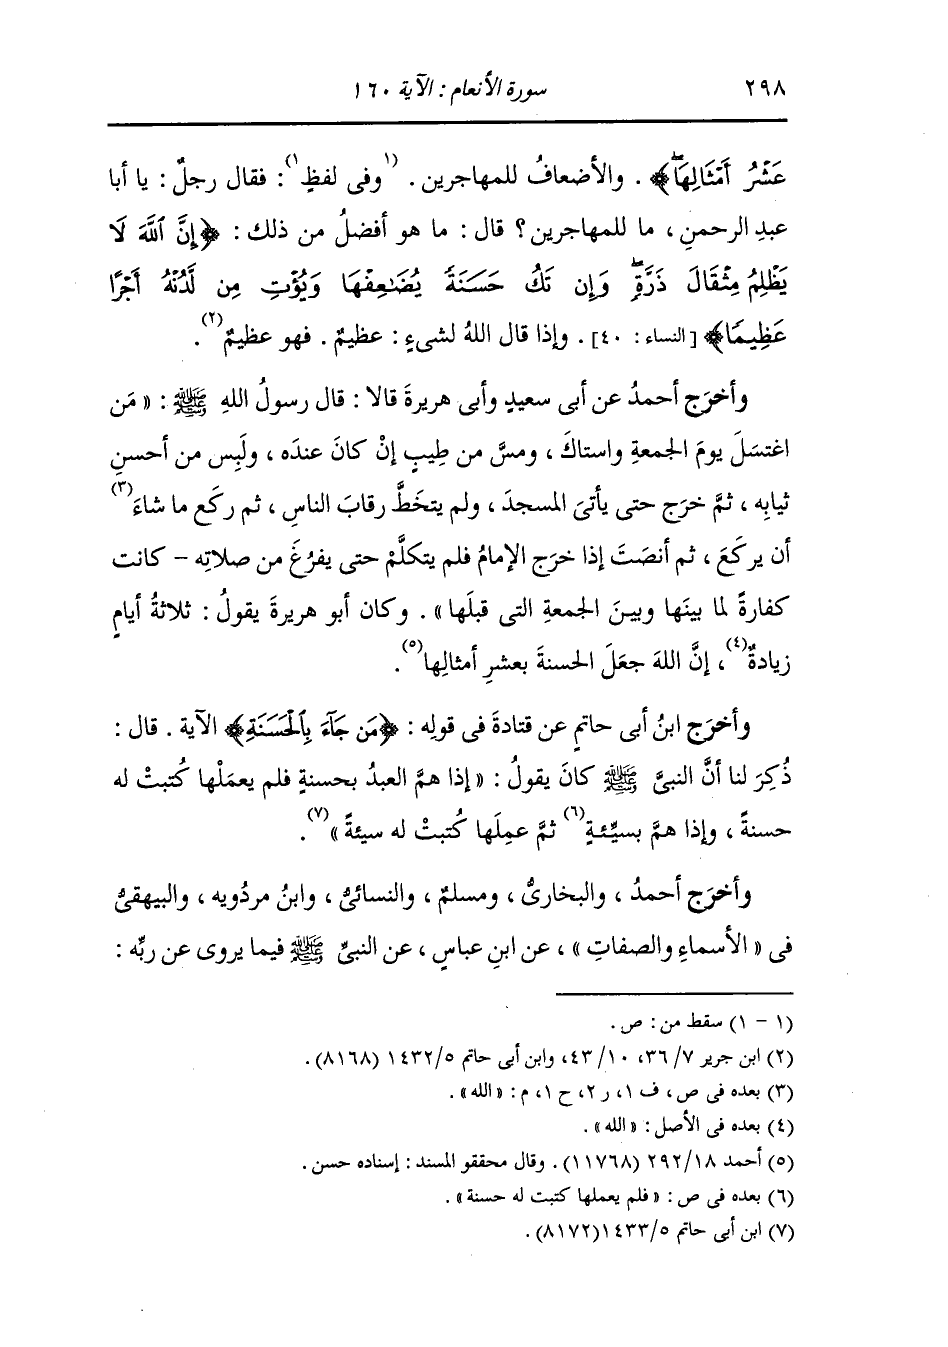 ٢٩٨ سورة الأنعام : الآية ١٦٠
عَشْرُ أَمْثَالِهَاۖ﴾ . والأضعافُ للمهاجرين . (١وفى لفظٍ١) : فقال رجلٌ : يا أبا
عبدِ الرحمنِ ، ما للمهاجرين ؟ قال : ما هو أفضلُ من ذلك : ﴿إِنَّ ٱللَّهَ لَا
يَظْلِمُ مِثْقَالَ ذَرَّةٍۖ وَإِن تَكُ حَسَنَةً يُضَٰعِفْهَا وَيُؤْتِ مِن لَّدُنْهُ أَجْرًا
عَظِيمًا﴾ [النساء : ٤٠] . وإذا قال اللهُ لشىءٍ : عظيمٌ . فهو عظيمٌ(٢) .
وأخرَج أحمدُ عن أبى سعيدٍ وأبى هريرةَ قالا : قال رسولُ اللهِ ﷺ : « مَن
اغتسَلَ يومَ الجمعةِ واستاكَ ، ومسَّ من طِيبٍ إنْ كانَ عندَه ، ولَبِس من أحسنِ
ثيابِه ، ثمَّ خرَج حتى يأتىَ المسجدَ ، ولم يتخَطَّ رقابَ الناسِ ، ثم ركَع ما شاءَ(٣)
أن يركَعَ ، ثم أنصَتَ إذا خرَج الإمامُ فلم يتكلَّمْ حتى يفرُغَ من صلاتِه – كانت
كفارةً لما بينَها وبينَ الجمعةِ التى قبلَها » . وكان أبو هريرةَ يقولُ : ثلاثةُ أيامٍ
زيادةٌ(٤) ، إنَّ اللهَ جعَلَ الحسنةَ بعشرِ أمثالِها(٥) .
وأخرَج ابنُ أبى حاتمٍ عن قتادةَ فى قولِه : ﴿مَن جَآءَ بِٱلْحَسَنَةِ﴾ الآية . قال :
ذُكِرَ لنا أنَّ النبىَّ ﷺ كانَ يقولُ : « إذا همَّ العبدُ بحسنةٍ فلم يعمَلْها كُتبتْ له
حسنةً ، وإذا همَّ بسيِّئةٍ(٦) ثمَّ عمِلَها كُتبتْ له سيئةً »(٧) .
وأخرَج أحمدُ ، والبخارىُّ ، ومسلمٌ ، والنسائىُّ ، وابنُ مردُويه ، والبيهقىُّ
فى « الأسماءِ والصفاتِ » ، عن ابنِ عباسٍ ، عن النبىِّ ﷺ فيما يروى عن ربِّه :
(١ – ١) سقط من : ص .
(٢) ابن جرير ٧/ ٣٦، ١٠/ ٤٣، وابن أبى حاتم ١٤٣٢/٥ (٨١٦٨).
(٣) بعده فى ص ، ف ١، ر ٢، ح ١، م : « الله » .
(٤) بعده فى الأصل : « الله » .
(٥) أحمد ٢٩٢/١٨ (١١٧٦٨) . وقال محققو المسند : إسناده حسن .
(٦) بعده فى ص : « فلم يعملها كتبت له حسنة » .
(٧) ابن أبى حاتم ١٤٣٣/٥(٨١٧٢) .